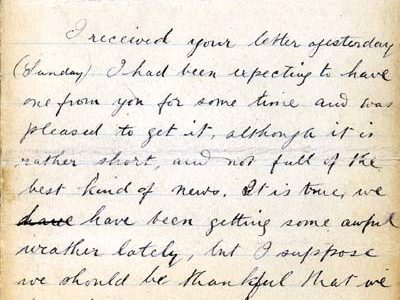 I received your letter yesterday
(Sunday) I had been expecting to have
one from you for some time and was
pleased to get it, although it is
rather short, and not full of the
best kind of news. It is true, we
have have been getting some awful
weather lately, but I suppose
we should be thankful that we